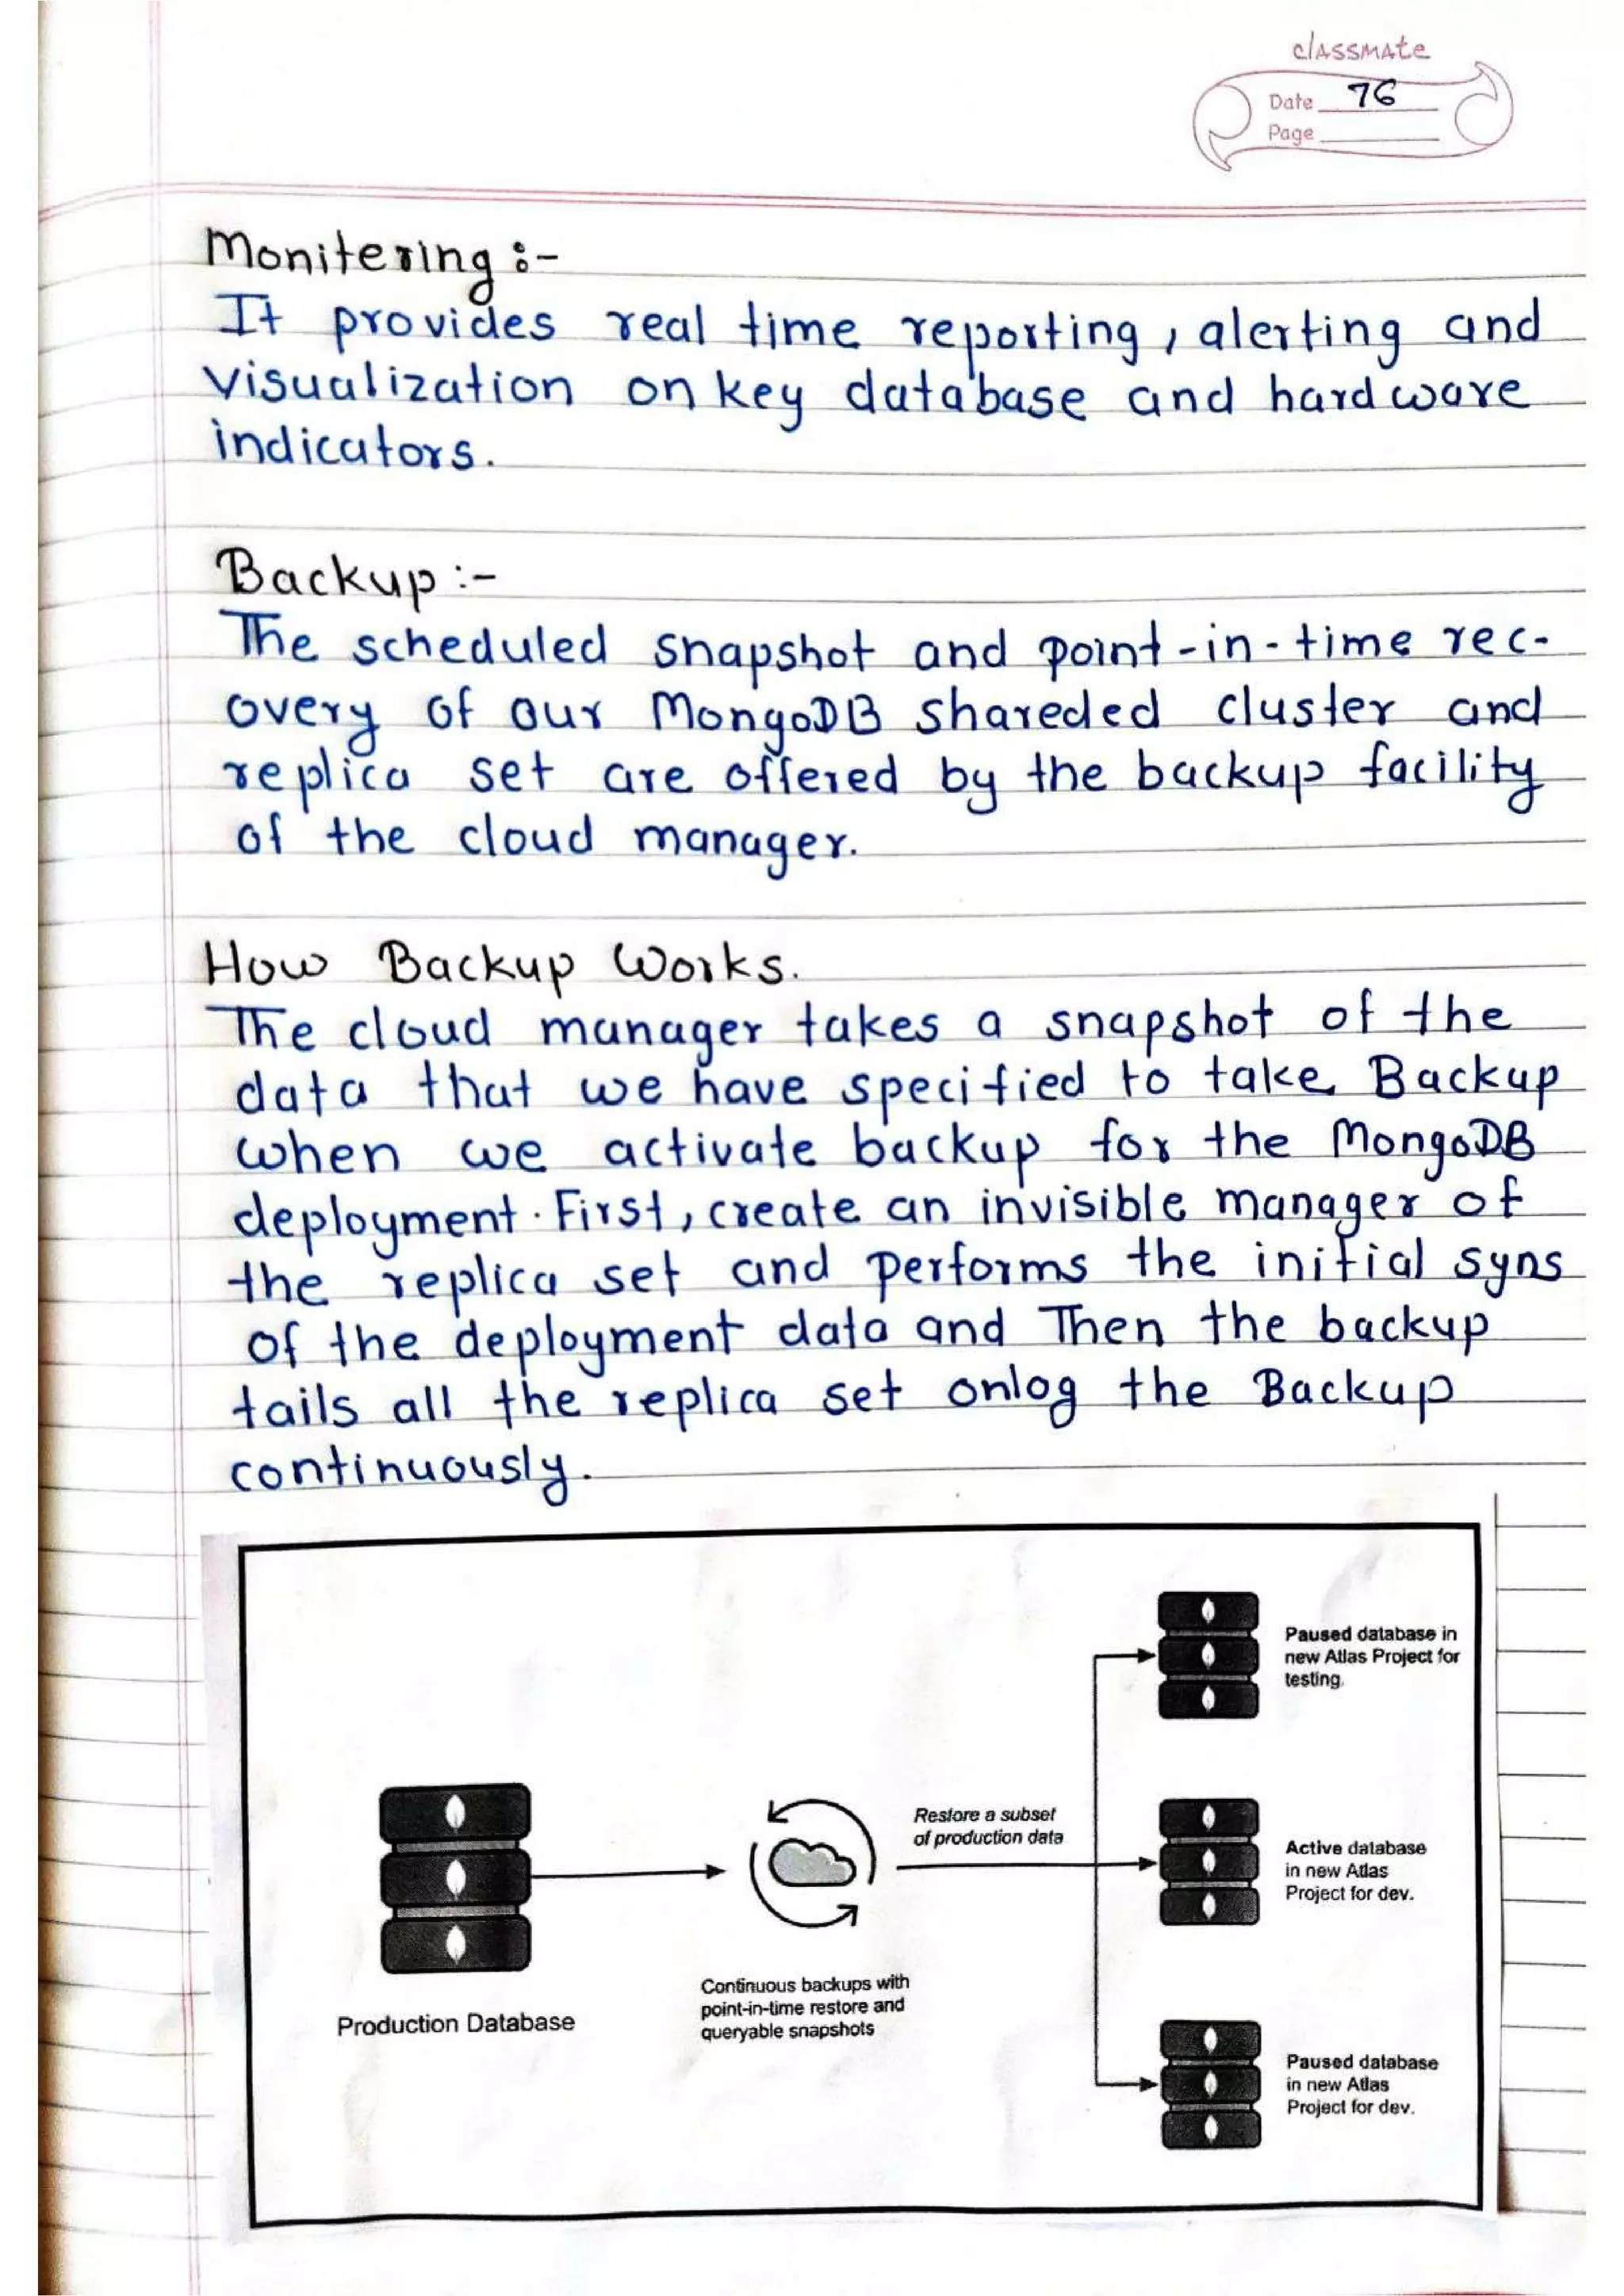 classmate
Date 76
Page
Monitering :-
It provides real time reporting, alerting and
visualization on key database and hardware
indicators.
Backup :-
The scheduled snapshot and point-in-time rec-
overy of our MongoDB shareded cluster and
replica set are offered by the backup facility
of the cloud manager.
How Backup Works.
The cloud manager takes a snapshot of the
data that we have specified to take Backup
when we activate backup for the MongoDB
deployment. First, create an invisible manager of
the replica set and performs the initial syns
of the deployment data and Then the backup
tails all the replica set onlog the Backup
continuously.
Paused database in
new Atlas Project for
testing.
Restore a subset
of production data
Active database
in new Atlas
Project for dev.
Continuous backups with
point-in-time restore and
queryable snapshots
Production Database
Paused database
in new Atlas
Project for dev.